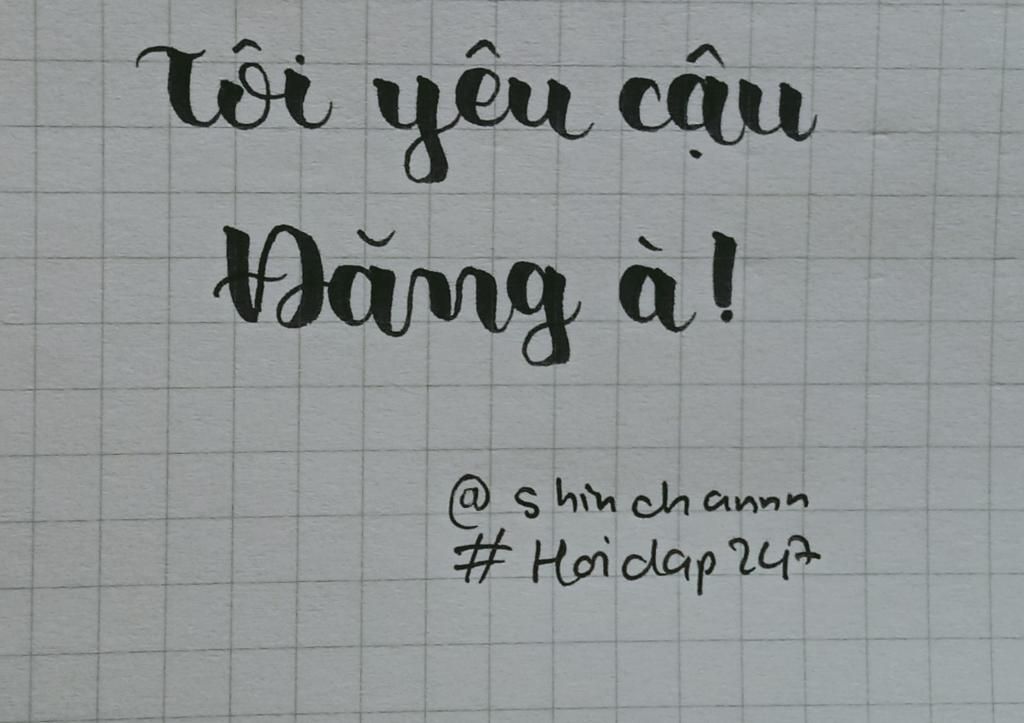 Tôi yêu cậu
Đăng à!
@shinchannn
#Hoidap247